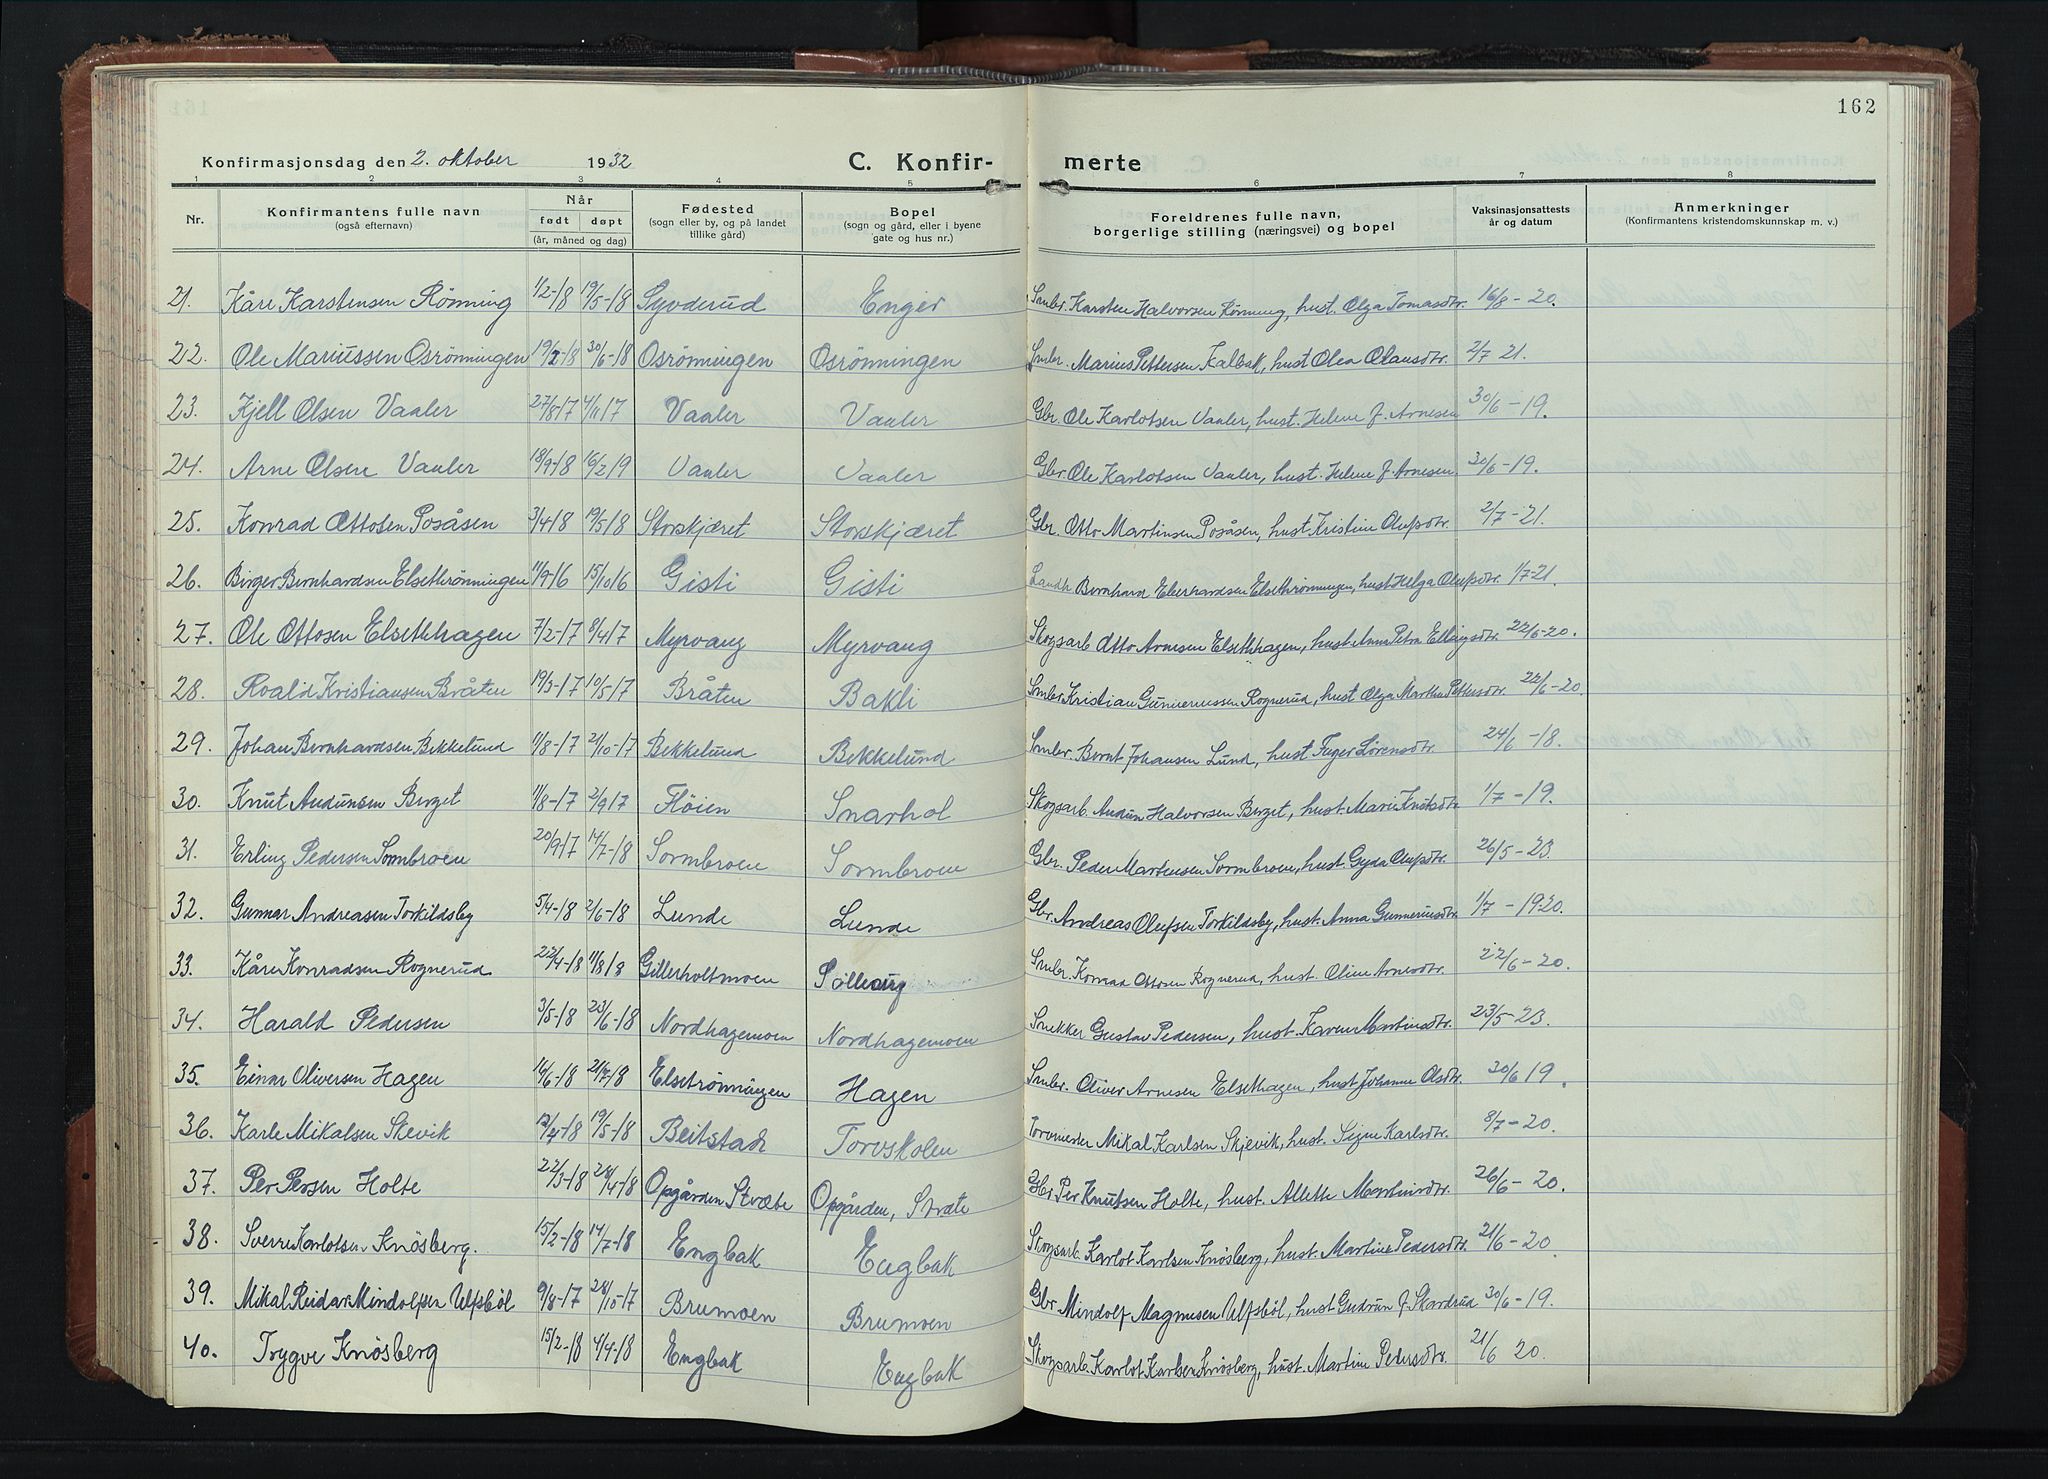 162
Konfirmasjonsdag den 2. oktober 1932 C. Konfir- merte
1 2 3 4 5 6 7 8
Nr. Konfirmantens fulle navn (også efternavn) Når født døpt (år, måned og dag) Fødested (sogn eller by, og på landet tillike gård) Bopel (sogn og gård, eller i byene gate og hus nr.) Foreldrenes fulle navn, borgerlige stilling (næringsvei) og bopel Vaksinasjonsattests år og datum Anmerkninger (Konfirmantens kristendomskunnskap m. v.)
21. Kåre Karstensen Rønning 1/2-18 19/5-18 Syverud Enger Smbr. Karsten Halvorsen Rønning, hust. Olga Tomasdtr. 16/8-20.
22. Ole Mariussen Osrønningen 19/2-18 30/6-18 Osrønningen Osrønningen Smbr. Marius Pettersen Kalbak, hust Olea Olausdtr. 2/7 21.
23. Kjell Olsen Vaaler 27/8 17 4/11 17 Vaaler Vaaler Gbr. Ole Karlotsen Vaaler, hust. Helene f. Arnesen 30/6-19.
24. Arne Olsen Vaaler 18/9-18 16/2 19 Vaaler Vaaler Gbr. Ole Karlotsen Vaaler, hust. Helene f. Arnesen 30/6-19.
25. Konrad Ottosen Posåsen 3/4 18 19/5 18 Storskjæret Storskjæret Gbr. Otto Martinsen Posåsen, hust Kristine Olufsdtr. 2/7-21.
26. Birger Bernhardsen Elsethrønningen 11/9-16 15/10 16 Gisti Gisti Landh. Bernhard Eberhardsen Elsethrønningen, hust Helga Olufsdtr. 1/7-21.
27. Ole Ottosen Elsethhagen 7/2-17 8/4 17 Myrvang Myrvang Skogsarb Otto Arnesen Elsethhagen, hust Anne Petra Ellingsdtr. 22/6-20.
28. Roald Kristiansen Bråten 19/3-17 10/5-17 Bråten Bakli Smbr Kristian Gunnerussen Rognerud, hust Olga Marthe Pettersdtr. 22/6-20.
29. Johan Bernhardsen Bekkelund 1/8-17 21/10-17 Bekkelund Bekkelund Smbr. Bernt Johansen Lund, hust Inger Lorensdtr. 24/6-18.
30. Knut Audunsen Berget 1/8-17 2/9 17 Fløien Snarhol Skogsarb. Audun Halvorsen Berget, hust. Marie Knutsdtr 1/7-19.
31. Erling Pedersen Sormbroen 20/9 17 14/7-18 Sormbroen Sormbroen Gbr. Peder Martinsen Sormbroen, hust. Gyda Olufsdtr. 26/5-23.
32. Gunnar Andreasen Torkildsby 5/4-18 2/6-18 Lunde Lunde Gbr. Andreas Olufsen Torkildsby, hust. Anna Gunneriusdtr. 1/7-19 20.
33. Kåre Konradsen Rognerud 22/4-18 11/8 18 Gillerholtmoen Solhaug Smbr. Konrad Ottosen Rognerud, hust. Oline Arnesdtr. 22/6-20.
34. Harald Pedersen 3/5-18 23/6-18 Nordhagemoen Nordhagemoen Snekker Gustav Pedersen, hust. Karen Martinsdtr. 23/5-23.
35. Einar Oliversen Hagen 16/6-18 21/7-18 Elsetrønningen Hagen Smbr. Oliver Arnesen Elsethhagen, hust Johanne Olsdtr. 30/6 19.
36. Karle Mikalsen Skevik 12/4-18 19/5-18 Beitstad Torvskolen Torvmester Mikal Karlsen Skjevik, hust. Signe Karlsdtr. 8/7-20.
37. Per Persen Holte 22/3-18 28/4-18 Opgården Stræte Opgården, Stræte Gbr Per Knutsen Holte, hust. Alette Martinsdtr. 26/6-20.
38. Sverre Karlotsen Knøsberg. 15/2-18 14/7-18 Engbak Engbak Skogsarb. Karlot Karlsen Knøsberg, hust. Martine Pedersdtr. 21/6-20.
39. Mikal Reidar Mindolfsen Ulfsbøl 9/8-17 28/10-17 Brumoen Brumoen Gbr Mindolf Magnusen Ulfsbøl, hust Gudrun f. Skardrud 30/6-19.
40. Trygve Knøsberg 15/2-18 4/4-18 Engbak Engbak Skogsarb. Karlot Karlsen Knøsberg, hust. Martine Pedersdtr. 21/6 20.